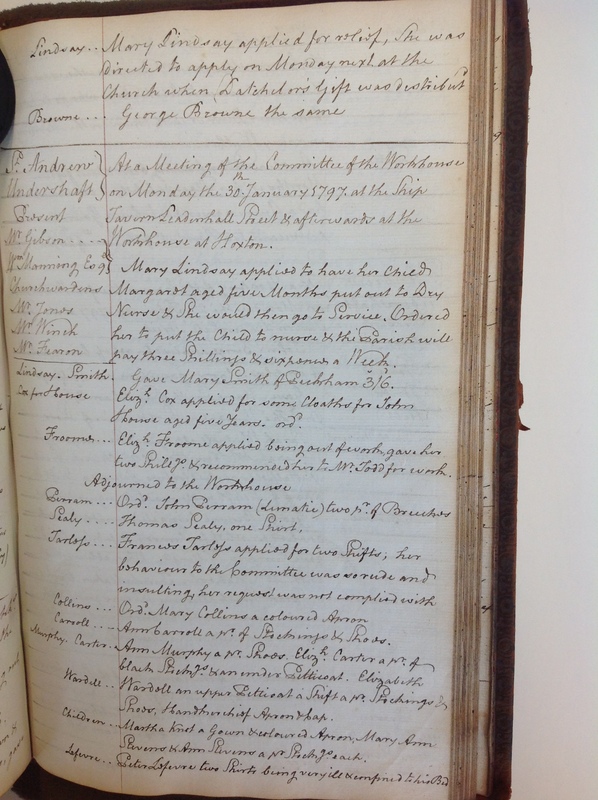 Lindsay .. Mary Lindsay applied for relief, She was
directed to apply on Monday next at the
Church when Latchelor's Gift was distributd
Browne ... George Browne the same
St. Andrew At a Meeting of the Committee of the Workhouse
Undershaft on Monday the 30th January 1797. at the Ship
Present Tavern Leadenhall Street & afterwards at the
Mr. Gibson .... Workhouse at Hoxton.
Wm Manning Esqr. Mary Lindsay applied to have her Child
Churchwardens Margaret aged five Months put out to Dry
Mr. Jones Nurse & She would then go to Service. Ordered
Mr. Winch her to put the Child to nurse & the Parish will
Mr. Fearon pay three Shillings & sixpence a Week.
Lindsay. Smith Gave Mary Smith of Peckham 3/6.
Cox for House Elizh. Cox applied for some Cloaths for John
House aged five Years. ordd.
Froome ... Elizh. Froome applied being out of work, gave her
two Shillgs & recommended her to Mr. Todd for work.
Adjourned to the Workhouse
Perram ... Ordd. John Perram (Lunatic) two pr. of Breeches
Sealy .... Thomas Sealy, one Shirt.
Tarloss .... Frances Tarloss applied for two Shifts; her
behaviour to the Committee was so rude and
insulting, her request was not complied with
Collins ... Ordd. Mary Collins a coloured Apron
Carroll ... Ann Carroll a pr. of Stockings & Shoes.
Murphy. Carter .. Ann Murphy a pr. Shoes. Elizh. Carter a pr. of
black Stockgs. & an under Petticoat. Elizabeth
Wardell ... Wardell an upper Petticoat a Shift a pr. Stockings &
Shoes, Handkerchief Apron & cap.
Children .... Martha Knot a Gown & coloured Apron, Mary Ann
Stevens & Ann Stevens a pr Stockgs. each.
Lefevre ... Peter Lefevre two Shirts being very ill & confined to his Bed